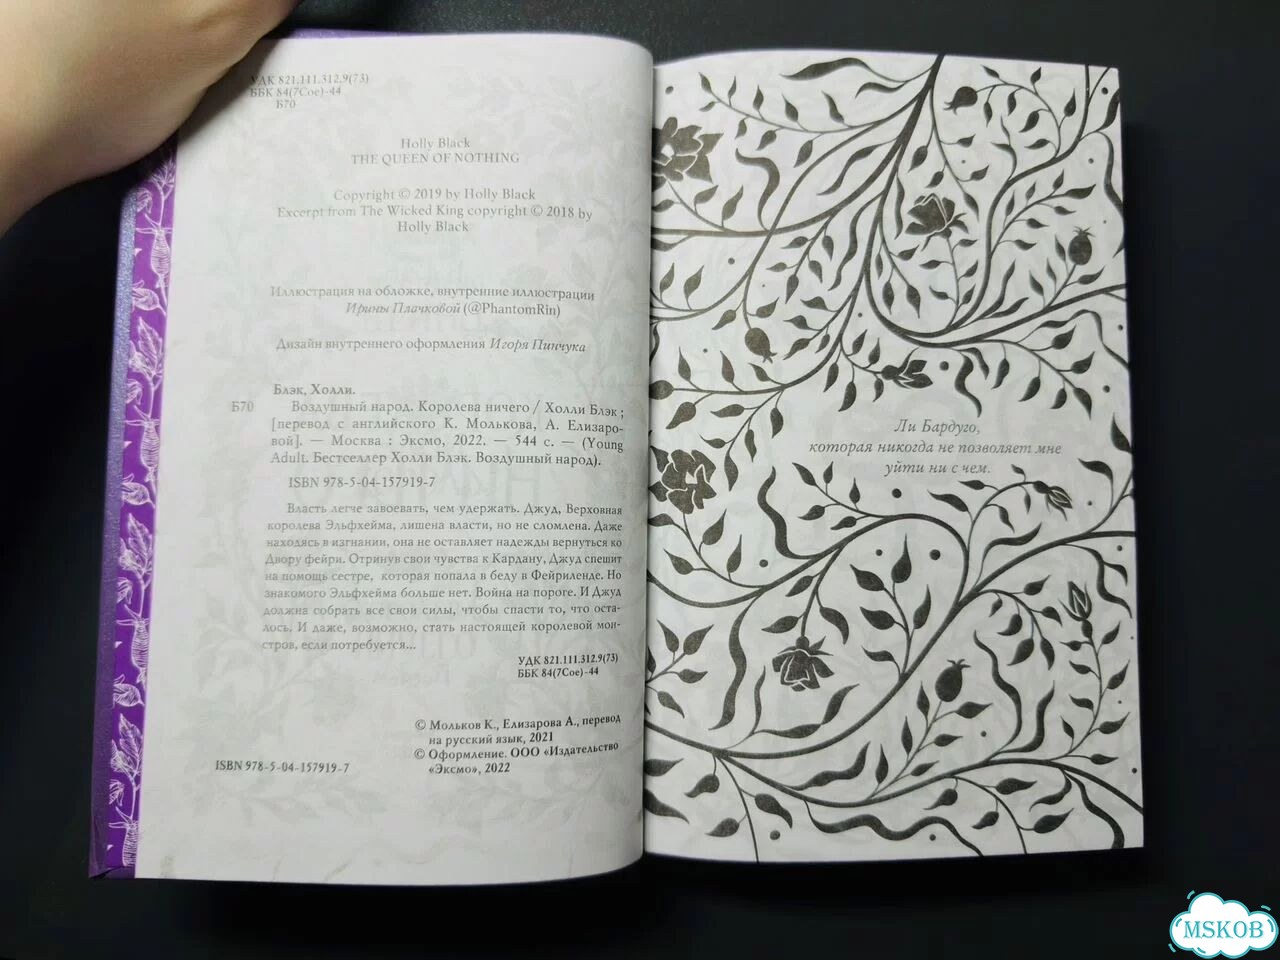 УДК 821.111.312.9(73)
ББК 84(7Сое)-44
Б70
Holly Black
THE QUEEN OF NOTHING
Copyright © 2019 by Holly Black
Excerpt from The Wicked King copyright © 2018 by
Holly Black
Иллюстрация на обложке, внутренние иллюстрации
Ирины Плачковой (@PhantomRin)
Дизайн внутреннего оформления Игоря Пинчука
Блэк, Холли.
Б70 Воздушный народ. Королева ничего / Холли Блэк ;
[перевод с английского К. Молькова, А. Елизаро-
вой]. — Москва : Эксмо, 2022. — 544 с. — (Young
Adult. Бестселлер Холли Блэк. Воздушный народ).
ISBN 978-5-04-157919-7
Власть легче завоевать, чем удержать. Джуд, Верховная
королева Эльфхейма, лишена власти, но не сломлена. Даже
находясь в изгнании, она не оставляет надежды вернуться ко
Двору фейри. Отринув свои чувства к Кардану, Джуд спешит
на помощь сестре, которая попала в беду в Фейриленде. Но
знакомого Эльфхейма больше нет. Война на пороге. И Джуд
должна собрать все свои силы, чтобы спасти то, что оста-
лось. И даже, возможно, стать настоящей королевой мон-
стров, если потребуется...
УДК 821.111.312.9(73)
ББК 84(7Сое)-44
© Мольков К., Елизарова А., перевод
на русский язык, 2021
© Оформление. ООО «Издательство
«Эксмо», 2022
ISBN 978-5-04-157919-7
Ли Бардуго,
которая никогда не позволяет мне
уйти ни с чем.
MSKOB